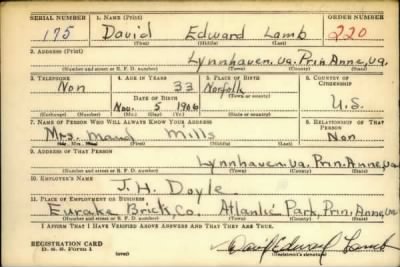 SERIAL NUMBER 1. NAME (Print) ORDER NUMBER
175 David Edward Lamb 220
(First) (Middle) (Last)
2. ADDRESS (Print)
Lynnhaven, Va. Prin Anne, Va.
(Number and street or R. F. D. number) (Town) (County) (State)
3. TELEPHONE 4. AGE IN YEARS 5. PLACE OF BIRTH 6. COUNTRY OF CITIZENSHIP
Non 33 Norfolk
DATE OF BIRTH (Town or county)
Nov. 5 1906 U.S.
(Exchange) (Number) (Mo.) (Day) (Yr.) (State or country)
7. NAME OF PERSON WHO WILL ALWAYS KNOW YOUR ADDRESS 8. RELATIONSHIP OF THAT PERSON
Mrs. Maud Mills Non
(Mr., Mrs., Miss) (First) (Middle) (Last)
9. ADDRESS OF THAT PERSON
Lynnhaven, Va. Prin. Anne, Va
(Number and street or R. F. D. number) (Town) (County) (State)
10. EMPLOYER'S NAME
J. H. Doyle
11. PLACE OF EMPLOYMENT OR BUSINESS
Eurake Brick, Co. Atlantic Park, Prin, Anne, Va
(Number and street or R. F. D. number) (Town) (County) (State)
I AFFIRM THAT I HAVE VERIFIED ABOVE ANSWERS AND THAT THEY ARE TRUE.
REGISTRATION CARD
D. S. S. Form 1 David Edward Lamb
(over) (Registrant's signature)